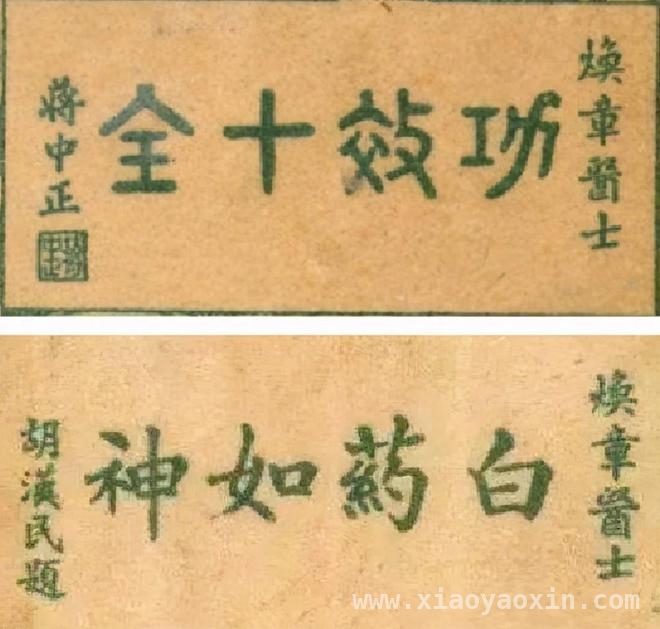 煥章醫士
功效十全
蔣中正
煥章醫士
白藥如神
胡漢民題
www.xiaoyaoxin.com